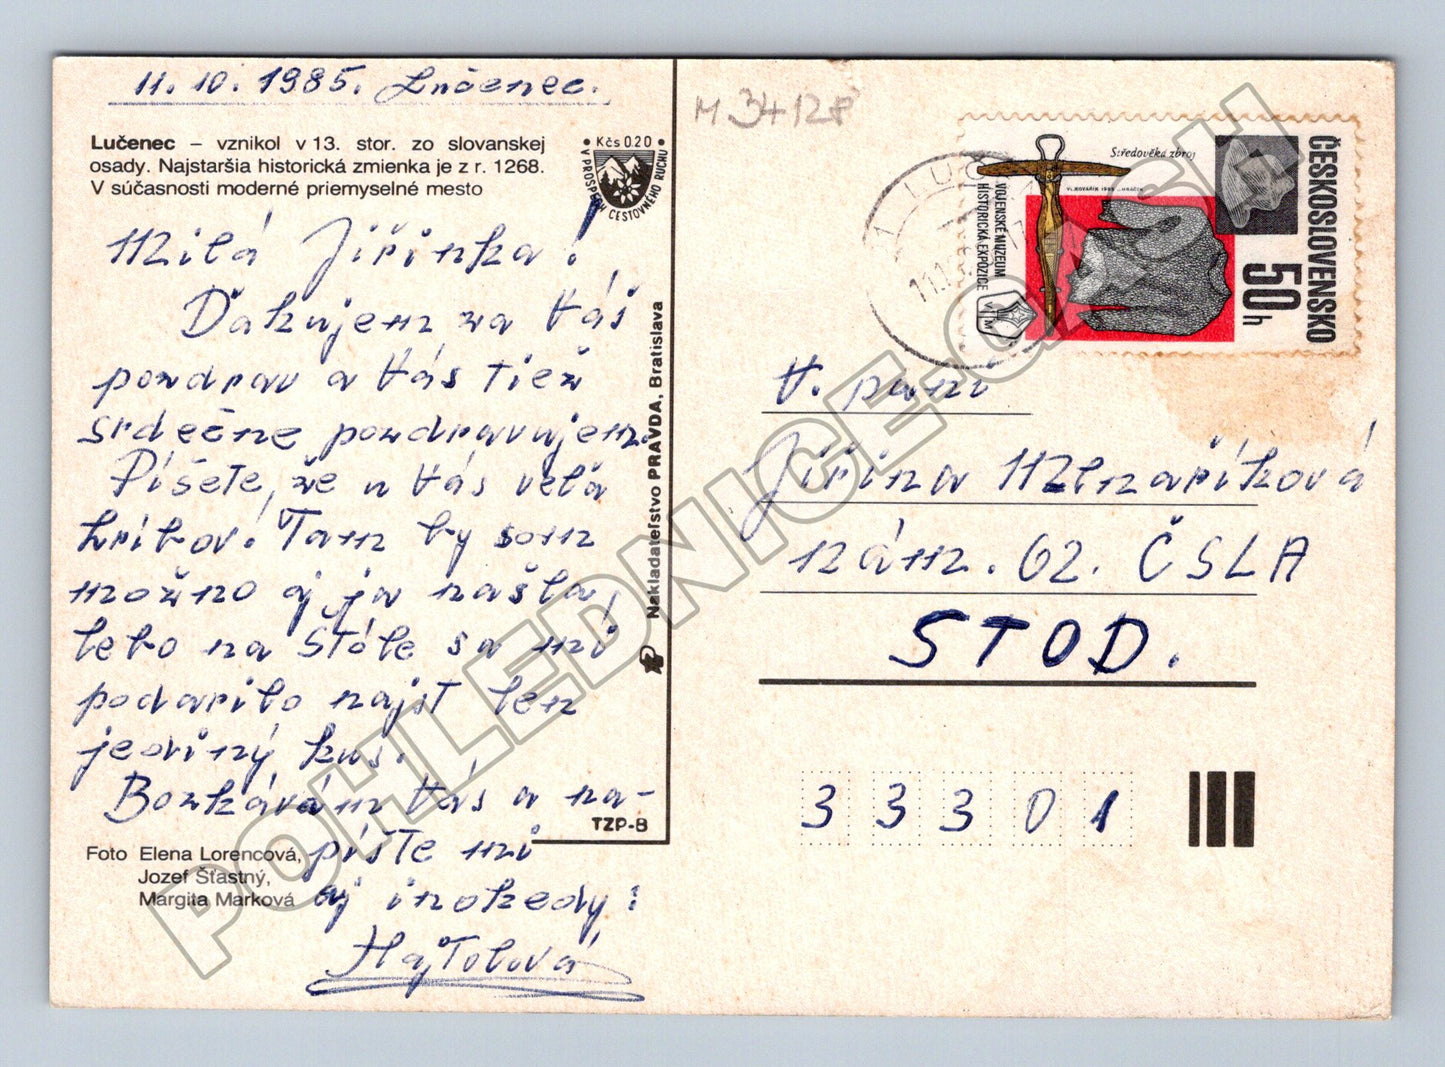 11.10.1985. Lučenec.
Lučenec – vznikol v 13. stor. zo slovanskej
osady. Najstaršia historická zmienka je z r. 1268.
V súčasnosti moderné priemyselné mesto
Kčs 0.20
V PROSPECH CESTOVNÉHO RUCHU
Milá Jiřinka!
Ďakujem za Váš
pozdrav a Vás tiež
srdečne pozdravujem.
Píšete, že u Vás veľa
hríbov. Tam by som
možno aj ja našla,
lebo na Štóle sa mi
podarilo nájsť len
jediný kus.
Bozkávám Vás a na-
píšte mi
aj inokedy!
Hajtolová
Foto Elena Lorencová,
Jozef Šťastný,
Margita Marková
TZP-B
Nakladateľstvo PRAVDA, Bratislava
M 34128
LUČ
11.1
ČESKOSLOVENSKO
50 h
Středověká zbroj
VOJENSKÉ MUZEUM
HISTORICKÁ EXPOZICE
V. pani
Jiřina Mlnaříková
nám. 62. ČSLA
STOD.
3 3 3 0 1
POHLEDNICE-CASH